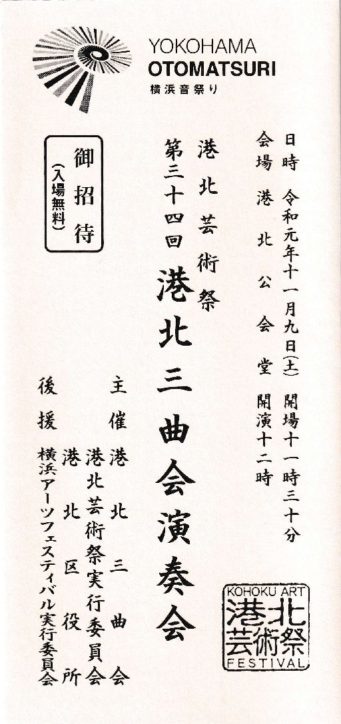 YOKOHAMA
OTOMATSURI
横浜音祭り
日時 令和元年十一月九日(土) 開場十一時三十分
会場 港北公会堂 開演十二時
港北芸術祭
第三十四回 港北三曲会演奏会
主催 港北三曲会
港北芸術祭実行委員会
港北区役所
後援 横浜アーツフェスティバル実行委員会
御招待
(入場無料)
KOHOKU ART
港北
芸術祭
FESTIVAL